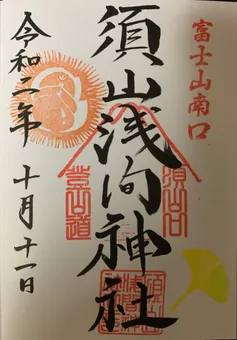 富士山南口
須山浅间神社
須山口
登山道
令和二年 十月十一日